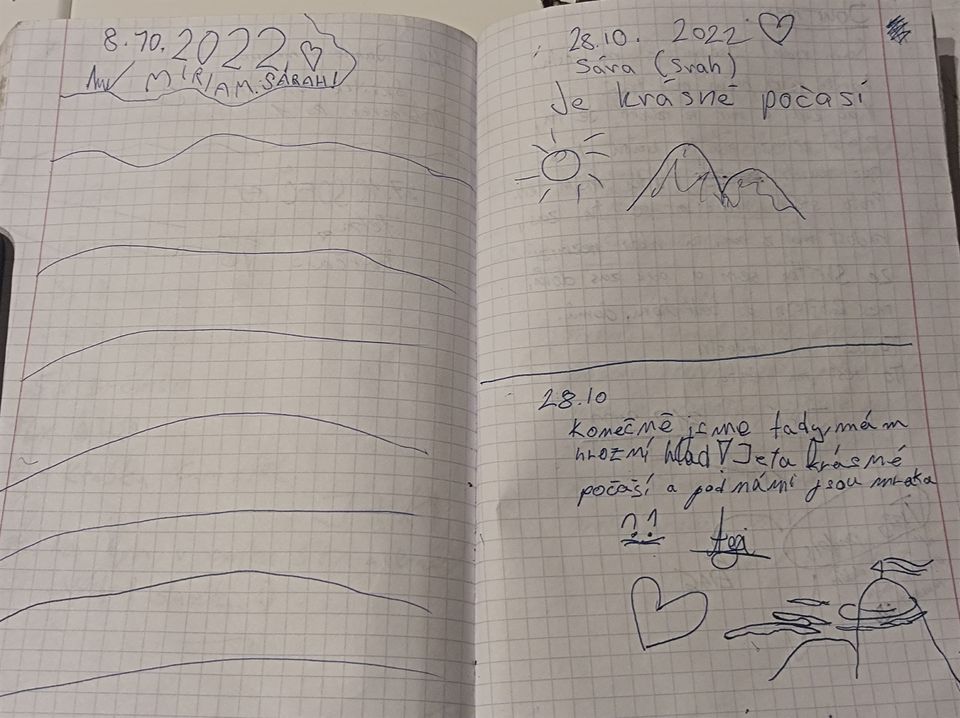 8.10.2022
MIRIAM.SÁRAH!
28.10. 2022
Sára (Srah)
Je krásné počasí
28.10
konečně jsme tady, mám
hrozní hlad Jeta krásné
počaší a pod námi jsou mraka